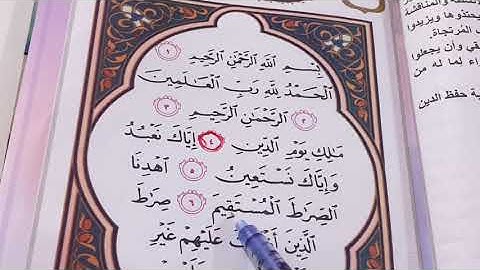 بِسْمِ ٱللَّهِ ٱلرَّحْمَٰنِ ٱلرَّحِيمِ ١
ٱلْحَمْدُ لِلَّهِ رَبِّ ٱلْعَٰلَمِينَ
٢ ٱلرَّحْمَٰنِ ٱلرَّحِيمِ ٣
مَٰلِكِ يَوْمِ ٱلدِّينِ ٤ إِيَّاكَ نَعْبُدُ
وَإِيَّاكَ نَسْتَعِينُ ٥ ٱهْدِنَا
ٱلصِّرَٰطَ ٱلْمُسْتَقِيمَ ٦ صِرَٰطَ
ٱلَّذِينَ عَلَيْهِمْ غَيْرِ
والمناقشة
يحتذوها ويزيدوا
المرتجاة.
وأن يجعلوا
لما له من
حفظ الدين